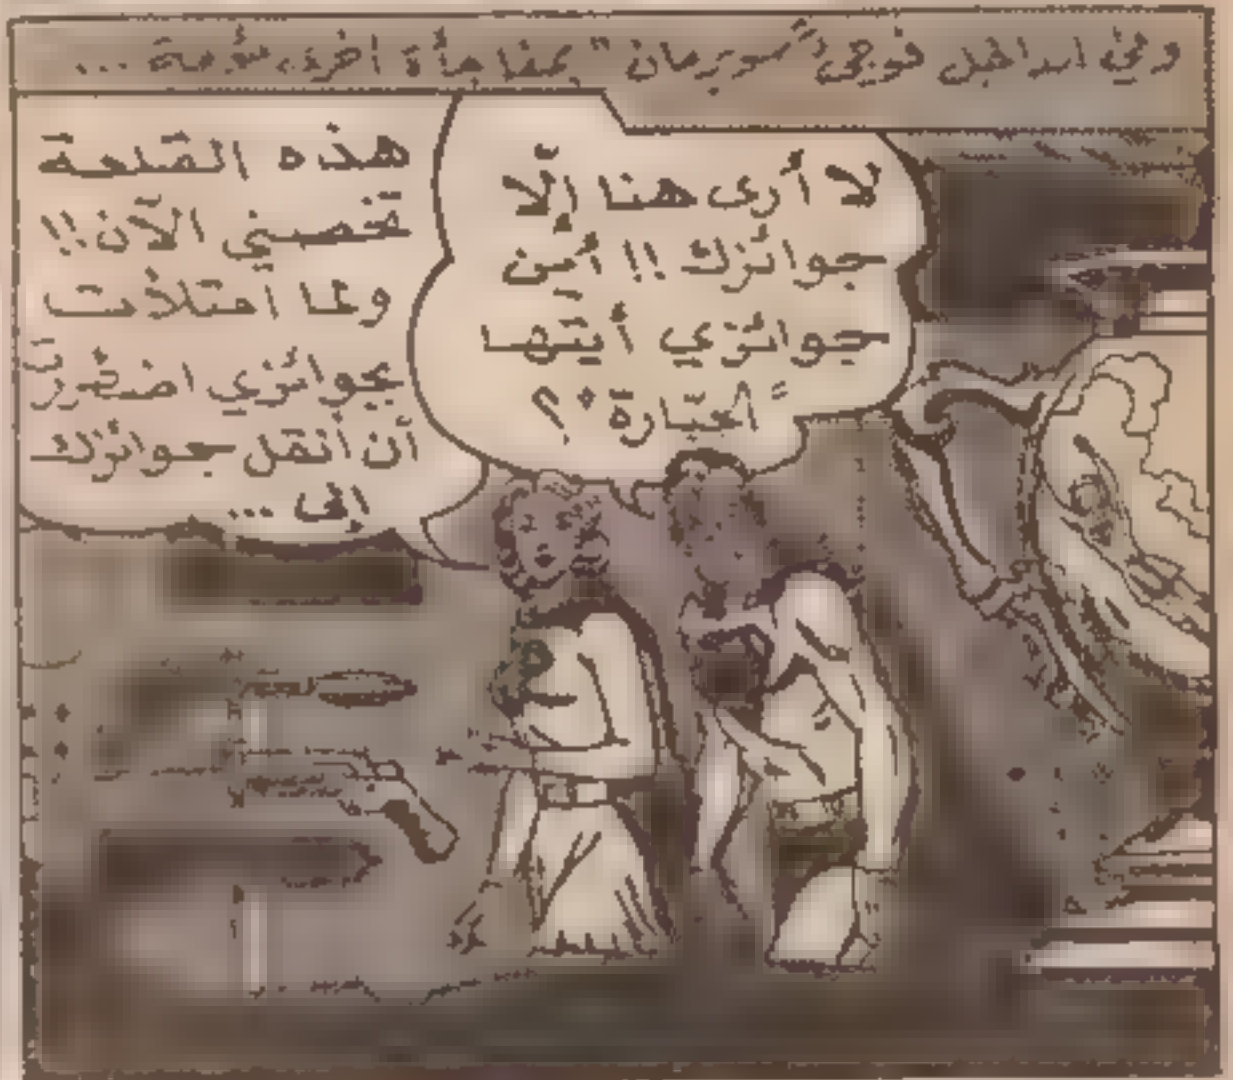 وفي الداخل فوجئ "سوبرمان" بمفاجأة أخرى مؤلمة ...
لا أرى هنا إلّا
جوائزك !! أين
جوائزي أيتها
"الجبّارة"؟
هذه القلعة
تخصني الآن!!
ولما امتلأت
بجوائزي اضطررتُ
أن أنقل جوائزك
إلى ...